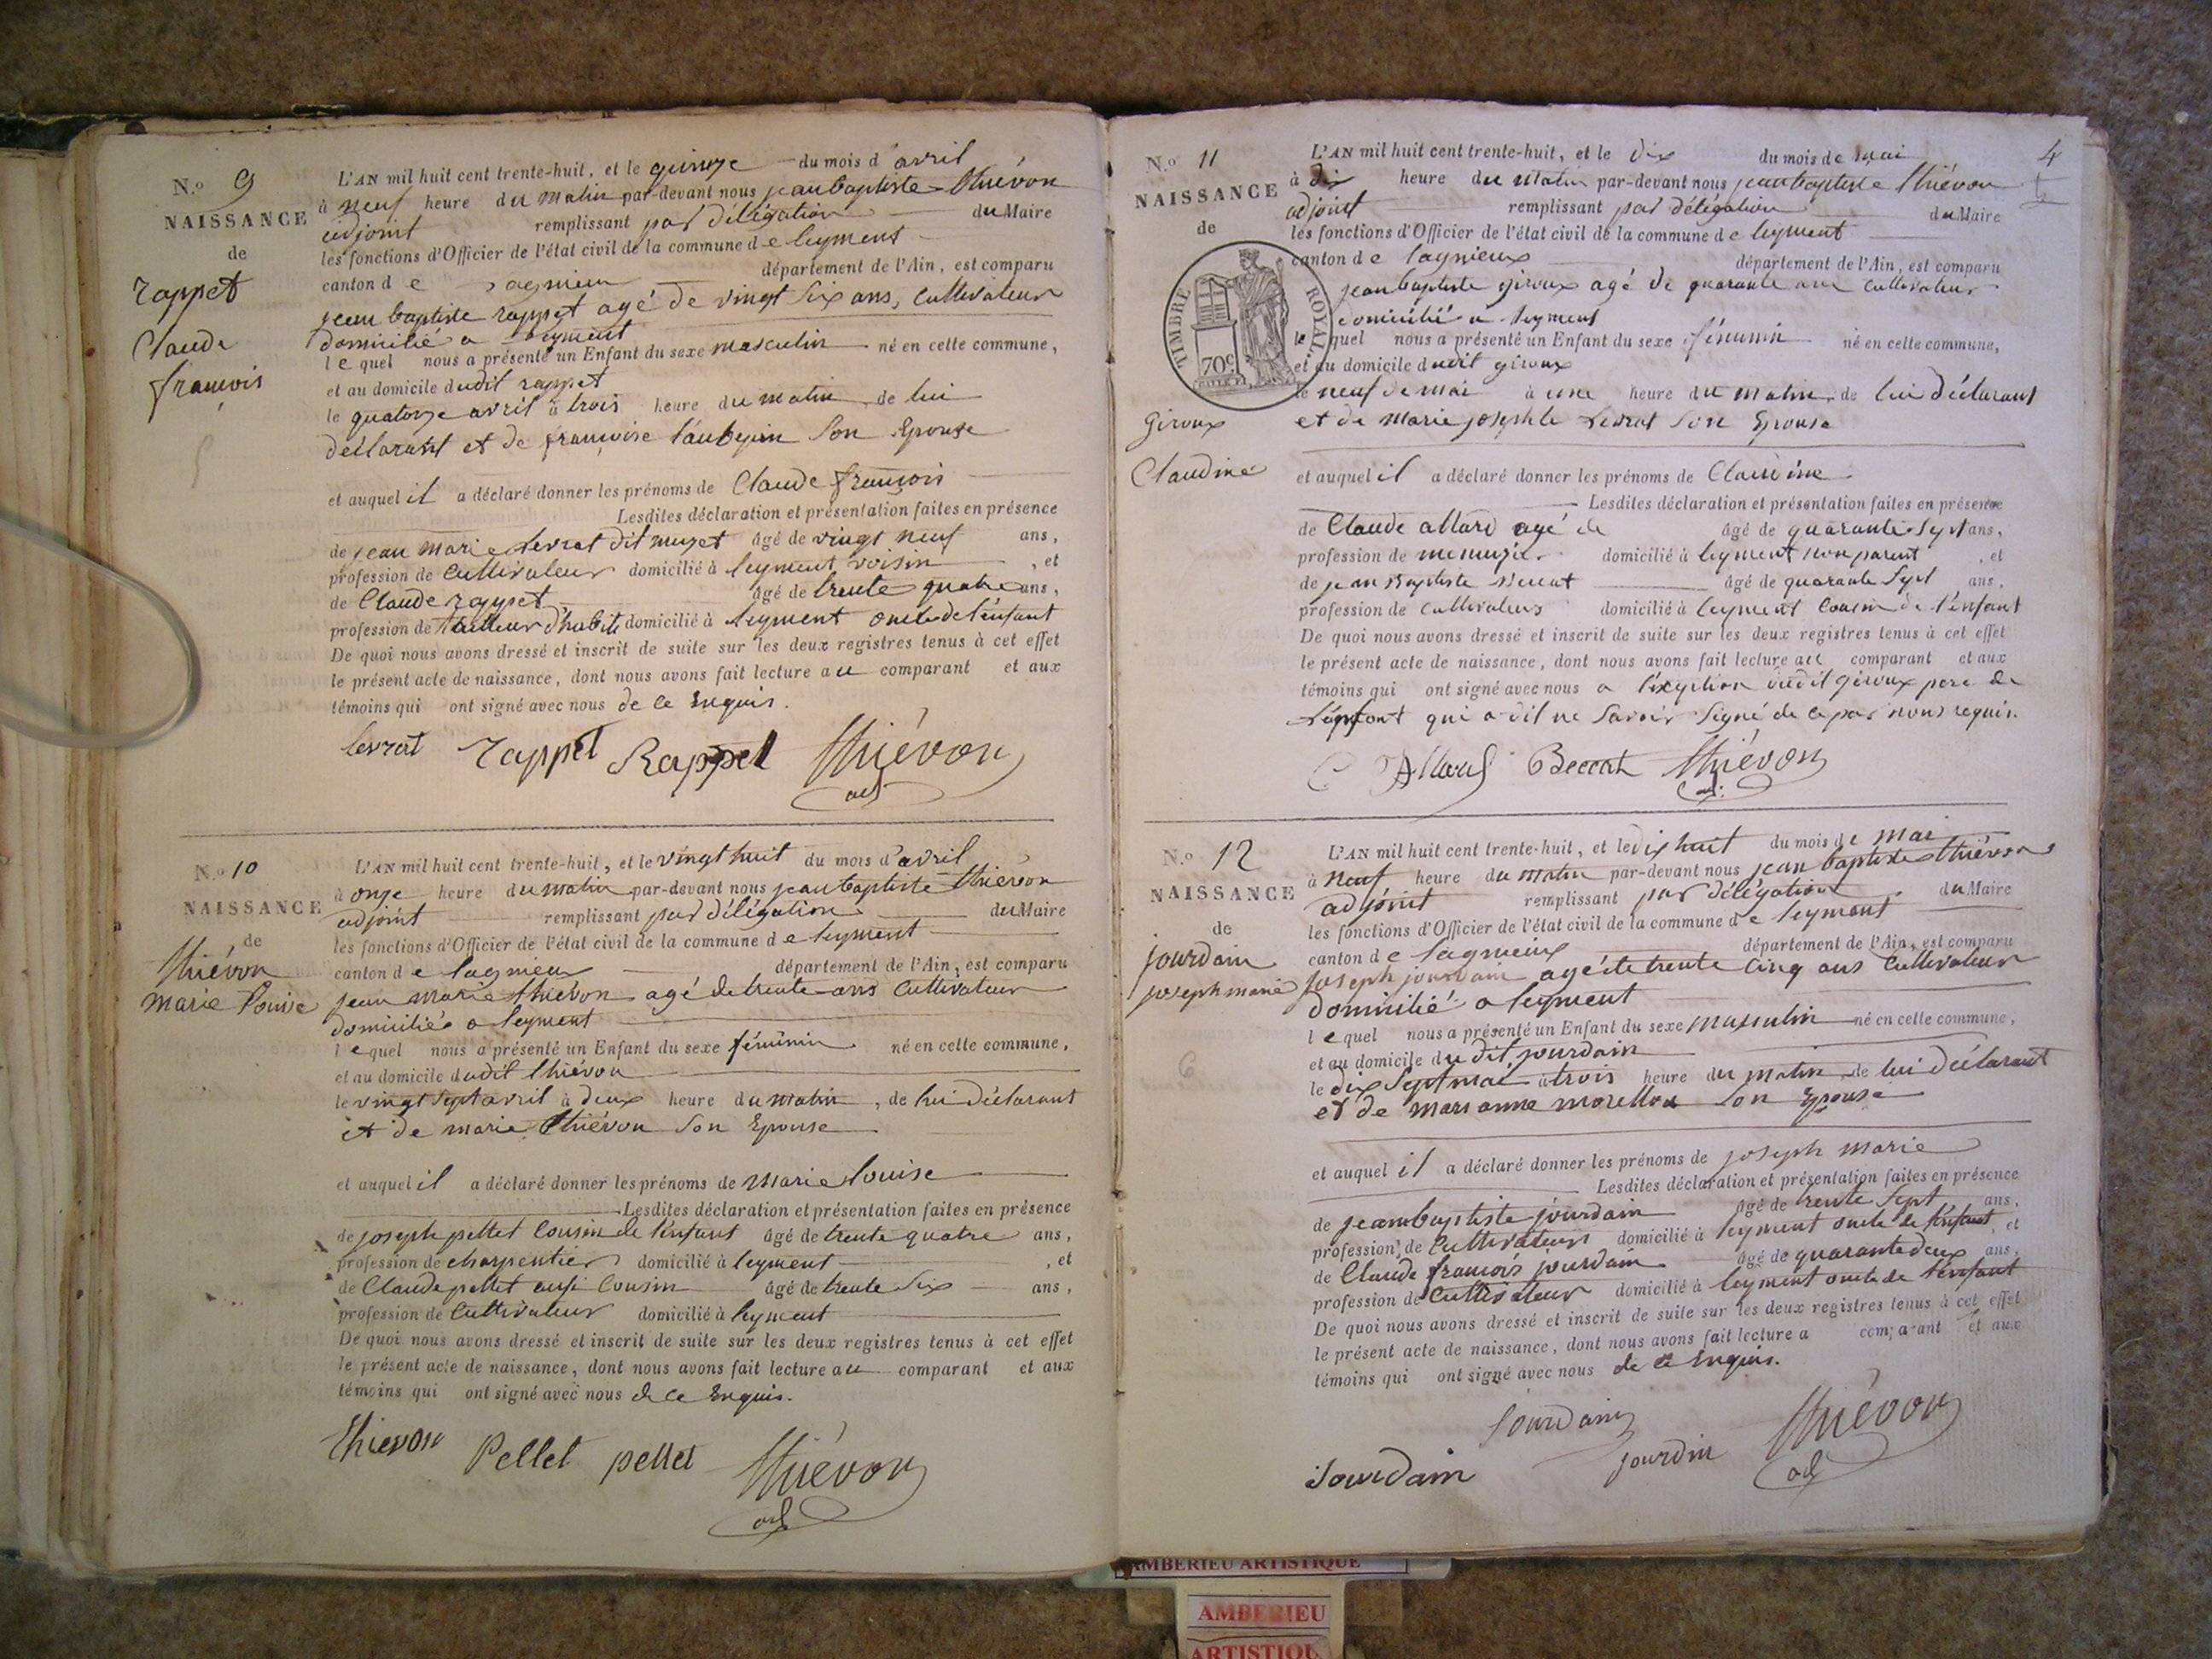 N.º 9
NAISSANCE
de
rappet
Claude
françois
L'AN mil huit cent trente-huit, et le quinze du mois d'avril
à neuf heure du matin par-devant nous jean baptiste thiévon
adjoint remplissant par délégation du Maire
les fonctions d'Officier de l'état civil de la commune de leyment
canton de lagnieu département de l'Ain, est comparu
jean baptiste rappet agé de vingt six ans, cultivateur
domicilié a leyment
lequel nous a présenté un Enfant du sexe masculin né en cette commune,
et au domicile dudit rappet
le quatorze avril à trois heure du matin de lui
déclarant et de françoise l'aubepin son Epouse
et auquel il a déclaré donner les prénoms de Claude françois
Lesdites déclaration et présentation faites en présence
de jean marie levrat dit muzet âgé de vingt neuf ans,
profession de cultivateur domicilié à leyment voisin, et
de Claude rappet âgé de trente quatre ans,
profession de tailleur d'habits domicilié à leyment oncle de l'énfant
De quoi nous avons dressé et inscrit de suite sur les deux registres tenus à cet effet
le présent acte de naissance, dont nous avons fait lecture au comparant et aux
témoins qui ont signé avec nous de ce Enquis.
levrat rappet Rappet thiévon
adj
N.º 10
NAISSANCE
de
thiévon
marie louise
L'AN mil huit cent trente-huit, et le vingt huit du mois d'avril
à onze heure du matin par-devant nous jean baptiste thiévon
adjoint remplissant par délégation du Maire
les fonctions d'Officier de l'état civil de la commune de leyment
canton de lagnieu département de l'Ain, est comparu
jean marie thiévon agé de trente ans cultivateur
domicilié a leyment
lequel nous a présenté un Enfant du sexe féminin né en cette commune,
et au domicile dudit thiévon
le vingt sept avril à deux heure du matin, de lui déclarant
et de marie thiévon son Epouse
et auquel il a déclaré donner les prénoms de marie louise
Lesdites déclaration et présentation faites en présence
de joseph pellet cousin de l'enfant âgé de trente quatre ans,
profession de charpentier domicilié à leyment, et
de Claude pellet aussi cousin âgé de trente six ans,
profession de cultivateur domicilié à leyment
De quoi nous avons dressé et inscrit de suite sur les deux registres tenus à cet effet
le présent acte de naissance, dont nous avons fait lecture au comparant et aux
témoins qui ont signé avec nous de ce Enquis.
thievon Pellet pellet thiévon
adj
4
N.º 11
NAISSANCE
de
TIMBRE ROYAL
70c
giroux
Claudine
L'AN mil huit cent trente-huit, et le dix du mois de mai
à dix heure du matin par-devant nous jean baptiste thiévon
adjoint remplissant par délégation du Maire
les fonctions d'Officier de l'état civil de la commune de leyment
canton de lagnieux département de l'Ain, est comparu
jean baptiste giroux agé de quarante ans cultivateur
domicilié a leyment
lequel nous a présenté un Enfant du sexe féminin né en cette commune,
et au domicile dudit giroux
le neuf de mai à une heure du matin, de lui déclarant
et de marie josephte levrat son Epouse
et auquel il a déclaré donner les prénoms de Claudine
Lesdites déclaration et présentation faites en présence
de Claude allard agé de âgé de quarante sept ans,
profession de menuzier domicilié à leyment non parent, et
de jean Baptiste âgé de quarante sept ans,
profession de cultivateur domicilié à leyment cousin de l'énfant
De quoi nous avons dressé et inscrit de suite sur les deux registres tenus à cet effet
le présent acte de naissance, dont nous avons fait lecture au comparant et aux
témoins qui ont signé avec nous a l'éxeption dudit giroux pere de
l'énfant qui a dit ne savoir signé de ce par nous requis.
C Allard Beccat thiévon
adj.
N.º 12
NAISSANCE
de
jourdain
joseph marie
6
L'AN mil huit cent trente-huit, et le dix huit du mois de mai
à neuf heure du matin par-devant nous jean baptiste thiévon
adjoint remplissant par délégation du Maire
les fonctions d'Officier de l'état civil de la commune de leyment
canton de lagnieux département de l'Ain, est comparu
joseph jourdain agé de trente cinq ans cultivateur
domicilié a leyment
lequel nous a présenté un Enfant du sexe masculin né en cette commune,
et au domicile du dit jourdain
le dix sept mai à trois heure du matin de lui déclarant
et de marianne morellon son Epouse
et auquel il a déclaré donner les prénoms de joseph marie
Lesdites déclaration et présentation faites en présence
de jean baptiste jourdain âgé de trente sept ans,
profession de cultivateur domicilié à leyment oncle de l'énfant, et
de Claude françois jourdain âgé de quarante deux ans,
profession de cultivateur domicilié à leyment oncle de l'énfant
De quoi nous avons dressé et inscrit de suite sur les deux registres tenus à cet effet
le présent acte de naissance, dont nous avons fait lecture a comparant et aux
témoins qui ont signé avec nous de ce Enquis.
jourdain jourdin thiévon
jourdain adj
AMBERIEU ARTISTIQUE
AMBERIEU
ARTISTIQU